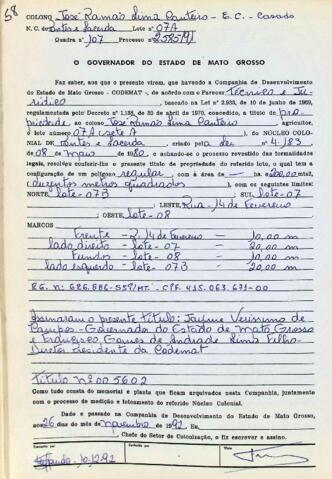 58
COLONO José Ramão Lima Canteiro - E.C. - Casado
N. C. de Pontes e Lacerda Lote nº 07A
Quadra nº 107 Processo nº 2585/91
O GOVERNADOR DO ESTADO DE MATO GROSSO
Faz saber, aos que o presente virem, que havendo a Companhia de Desenvolvimento
do Estado de Mato Grosso - CODEMAT -, de acôrdo com o Parecer Técnico e Ju-
rídico, baseado na Lei nº 2.933, de 10 de junho de 1969,
regulamentada pelo Decreto nº 1.138, de 30 de abril de 1970, concedido, a título de pro-
priedade, ao colono José Ramão Lima Canteiro, agricultor,
o lote número 07A (sete A) do NÚCLEO COLO-
NIAL DE Pontes e Lacerda, criado pela dei nº 4.183,
de 08 de maio de 80, e achando-se o processo revestido das formalidades
legais, resolveu conferir-lhe o presente título de propriedade do referido lote, o qual tem a
configuração de um polígono regular, com à área de — ha 200,00 mts2,
(duzentos metros quadrados), com os seguintes limites:
NORTE, lote-07B; SUL lote-07
; LESTE, Rua-14 de Fevereiro
; OESTE, lote-08
MARCOS
Frente - R. 14 de Fevereiro - 10,00 m
lado direito - lote-07 - 20,00 m
Fundos - lote-08 - 10,00 m
lado esquerdo - lote-07B - 20,00 m
R.G. nº 626.886-SSP/MT. - CPF. 415.063.671-00
Assinaram o presente título: Jayme Veríssimo de
Campos - Governador do Estado de Mato Grosso
e Francisco Gomes de Andrade Lima Filho -
Diretor Presidente da Codemat
Título Nº 005602
Como tudo consta do memorial e planta que ficam arquivados nesta Companhia, juntamente
com o processo de medição e loteamento do referido Núcleo Colonial.
Dado e passado na Companhia de Desenvolvimento do Estado de Mato Grosso,
aos 26 dias do mês de novembro de 1992. Eu,
, Chefe do Setor de Colonização, o fiz escrever e assino.
Escrito por
Conferido por
Visto
10.12.92